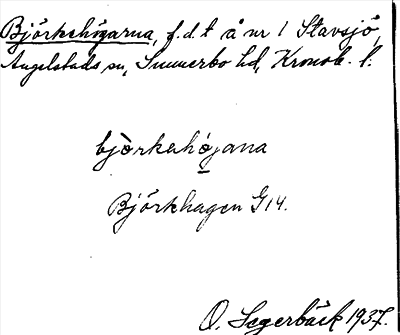 Björkehögarna, f.d.t å nr 1 Stavsjö,
Angelstads sn, Sunnerbo hd, Kronob. l:
bjòrkahǫjana
Björkhagen G14.
O. Segerbäck 1937.